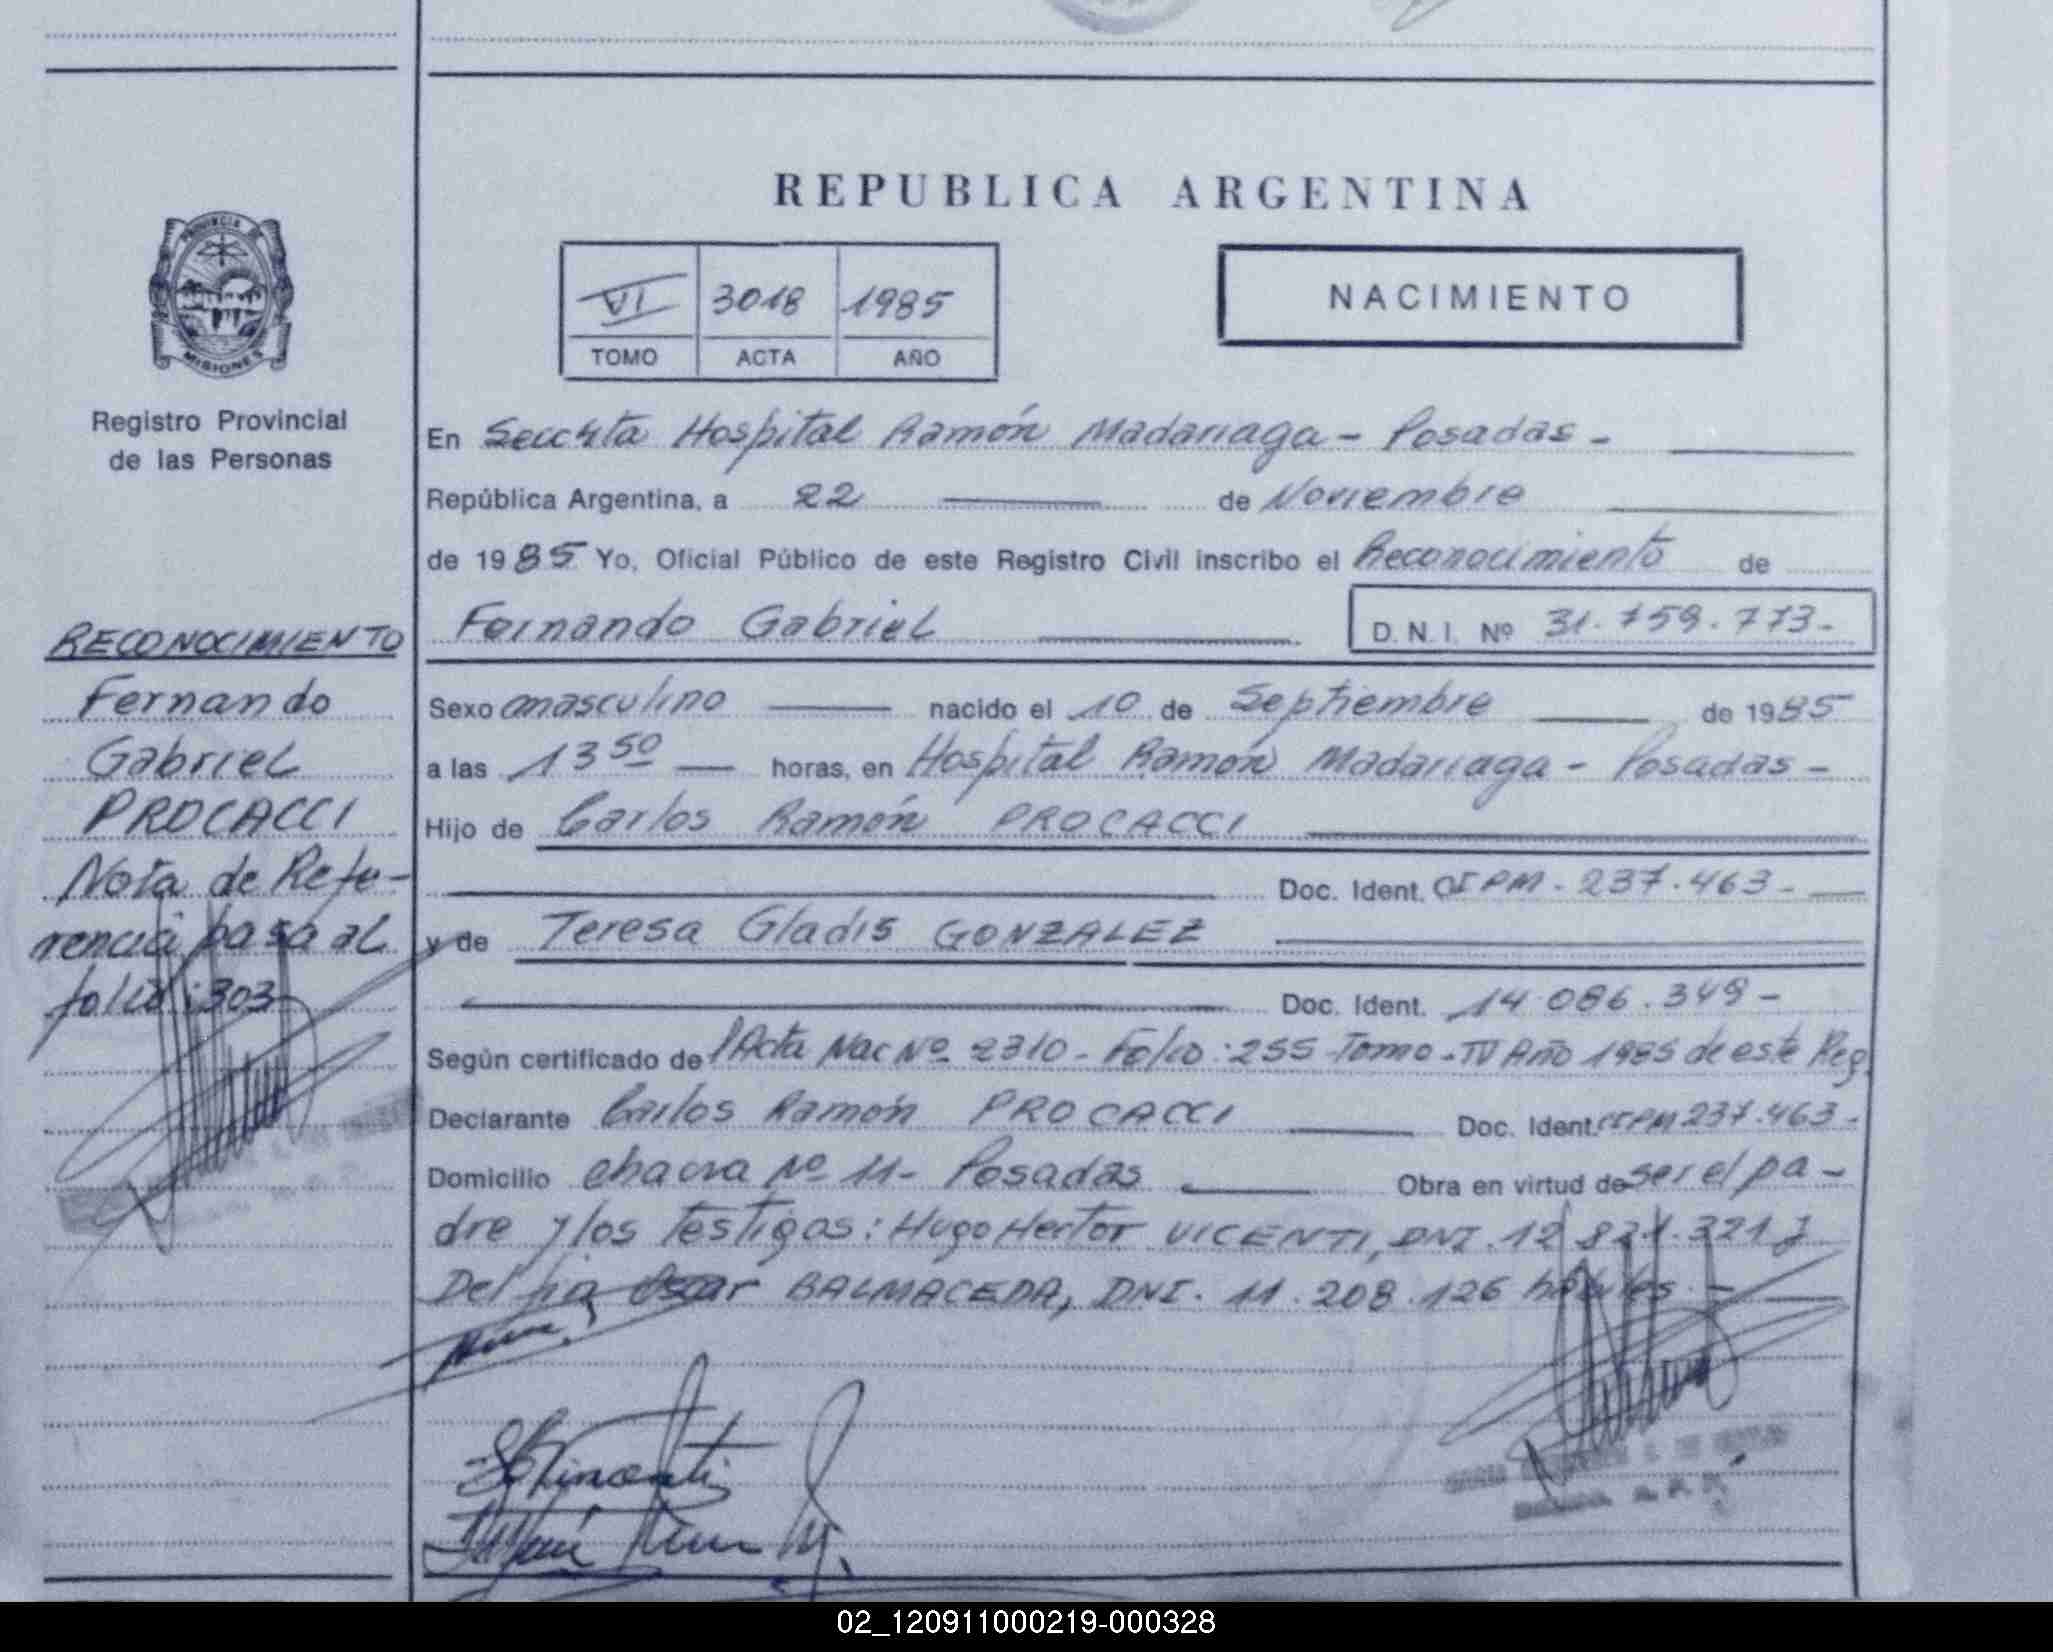 REPUBLICA ARGENTINA
PROVINCIA DE
MISIONES
Registro Provincial
de las Personas
VI 3018 1985
TOMO ACTA AÑO
NACIMIENTO
En Hospital Ramón Madariaga - Posadas -
República Argentina, a 22 de Noviembre
de 1985 Yo, Oficial Público de este Registro Civil inscribo el Reconocimiento de
Fernando Gabriel D.N.I. Nº 31.759.773-
Sexo masculino nacido el 10 de Septiembre de 1985
a las 13 50 horas, en Hospital Ramón Madariaga - Posadas -
Hijo de Carlos Ramón PROCACCI
Doc. Ident. CIPM. 237.463-
y de Teresa Gladis GONZALEZ
Doc. Ident. 14.086.349-
Según certificado de Acta Nac Nº 2310 - Folio: 255 - Tomo - IV Año 1985 de este Reg.
Declarante Carlos Ramón PROCACCI Doc. Ident. CIPM 237.463-
Domicilio chacra Nº 11- Posadas Obra en virtud de ser el pa-
dre y los testigos: Hugo Hector VICENTI, DNI. 12.821.321 y
BALMACEDA, DNI. 11.208.126 hábiles.-
RECONOCIMIENTO
Fernando
Gabriel
PROCACCI
Nota de Refe-
rencia pasa al
folio: 303
02_120911000219-000328